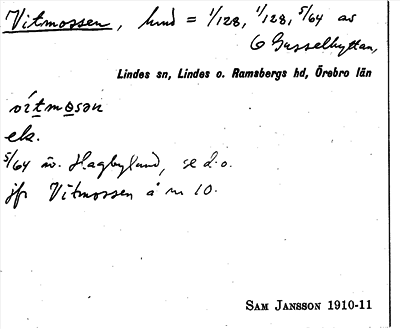 Vitmossen, hmd = 1/128, 1/128, 5/64 av
6 Gusselhyttan,
Lindes sn, Lindes o. Ramsbergs hd, Örebro län
vitmosən
elr.
5/64 äv. Hagbyland, se d.o.
jfr Vitmossen å nr 10.
SAM JANSSON 1910-11